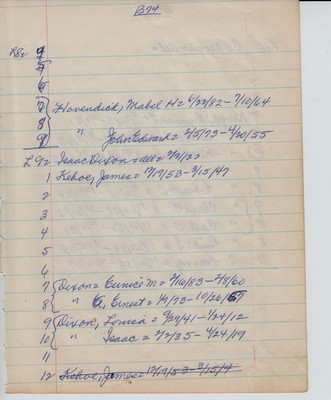 B74
L82 4
5
6
7 { Havendick, Mabel H = 6/22/82 - 7/10/64
8 " John Edward = 2/5/73 - 4/20/55
9
L92 Isaac Dixon = deed =
1 Kehoe, James = 12/19/53 - 3/15/47
2
3
4
5
6
7 { Dixon = Eunice M = 2/16/83 - 2/8/60
8 { " A, Ernest = 1/9/73 - 10/26/57
9 { Dixon, Louisa = 9/29/41 - 1/24/12
10 { " Isaac = 2/2/35 - 4/24/19
11
12 Kehoe, James = 12/19/53 - 3/15/4